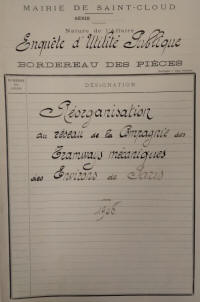 MAIRIE DE SAINT-CLOUD
SÉRIE
Nature de l'affaire
Enquête d'Utilité Publique
BORDEREAU DES PIÈCES
DÉSIGNATION
Réorganisation
du réseau de la Compagnie des
Tramways mécaniques
des Environs de Paris